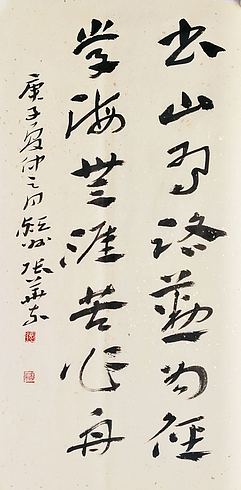 书山有路勤为径
学海无涯苦作舟
庚子夏仲之月 张华东